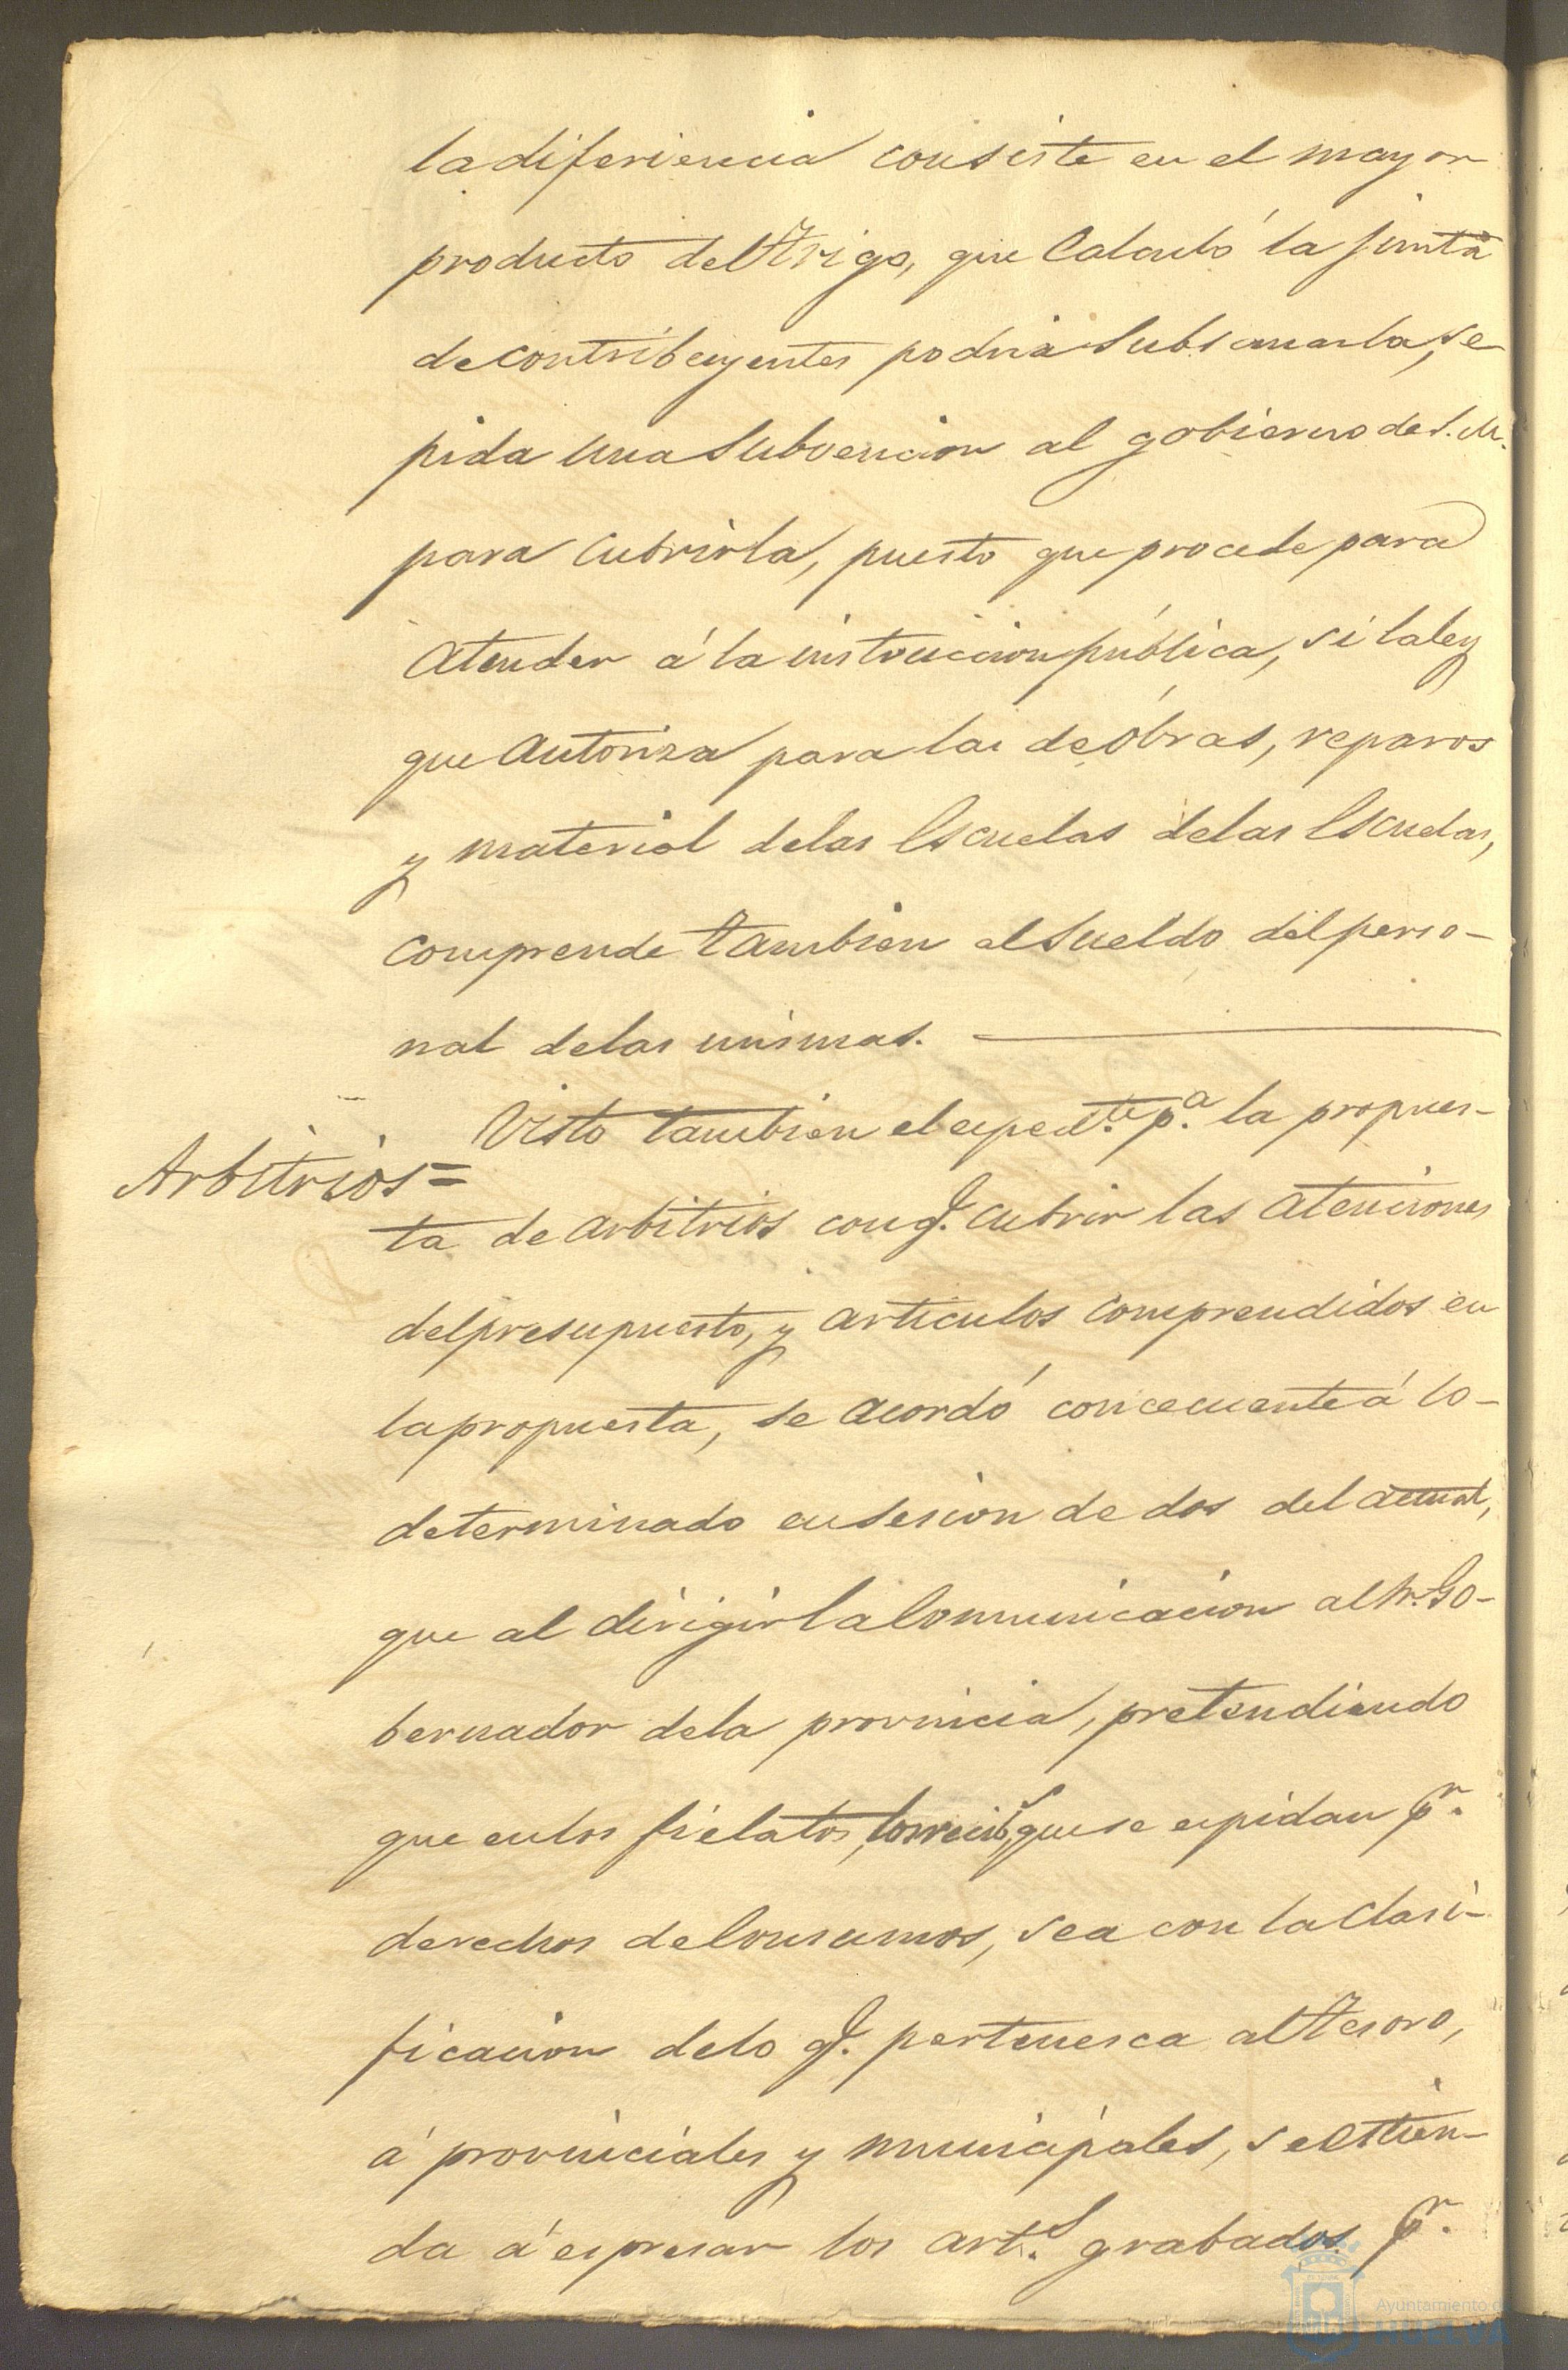 la diferiencia consiste en el mayor
producto del trigo, que Calculó la junta
de contribuyentes podria Subsanarla, se
pida una Subvencion al gobierno de S. M.
para Cubrirla, puesto que procede para
atender á la instruccion pública, si la ley
que autoriza para las de óbras, reparos
y material de las Escuelas de las Escuelas,
comprende tambien el Sueldo del perso-
nal de las mismas.
Arbitrios =
Visto tambien el esped.te p.a la propues-
ta de arbitrios con q. cubrir las atenciones
del presupuesto, y articulos comprendidos en
la propuesta, se acordó concecuente á lo-
determinado en sesion de dos del actual,
que al dirigir la Comunicacion al Sr. Go-
bernador de la provincia, pretendiendo
que en los fielatos, los recib.s que se espidan p.r
derechos de Consumos, sea con la clasi-
ficacion de lo q. pertenesca al tesoro,
á provinciales y municipales, se estien-
da á espresar los art.s grabados p.r
Ayuntamiento de
HUELVA